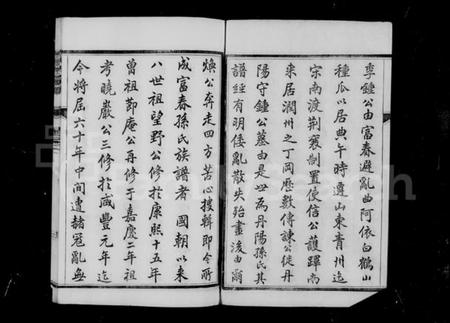 李鍾公由富春避亂曲阿依白鶴山
種瓜以居典午時遷山東青州迨
宋南渡荆襄制置使信公護蹕南
來居潤州之丁岡歷數傳諫公徙丹
陽守鍾公墓由是世為丹陽孫氏其
譜經有明倭亂散失殆盡後由爾
煥公奔走四方苦心搜輯即今所
成富春孫氏族譜者 國朝以來
八世祖望野公修於康熙十五年
曾祖節庵公再修于嘉慶二年祖
考曉巖公三修於咸豐元年迄
今將屆六十年中間遭赭冠亂無